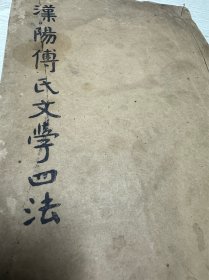 漢陽傅氏文学四法